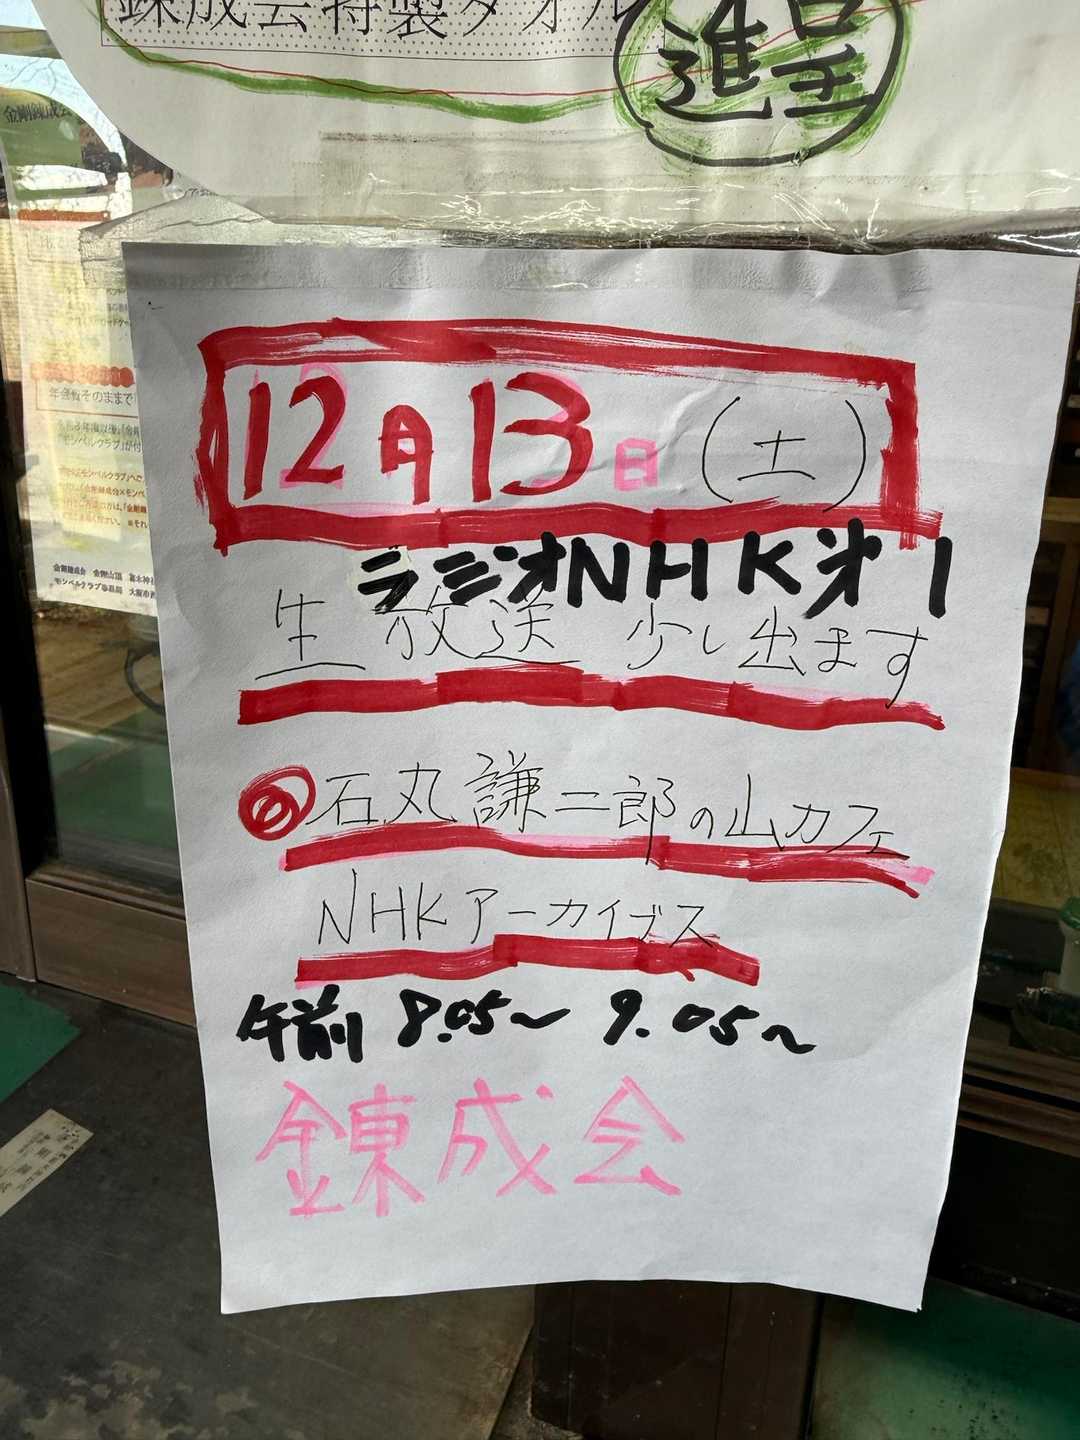 錬成会特製タオル
進呈
金剛錬成会
年会費そのままで
12月13日(土)
ラジオNHK㐧1
生放送 少し出ます
石丸謙二郎の山カフェ
NHKアーカイブス
午前 8.05〜9.05〜
錬成会